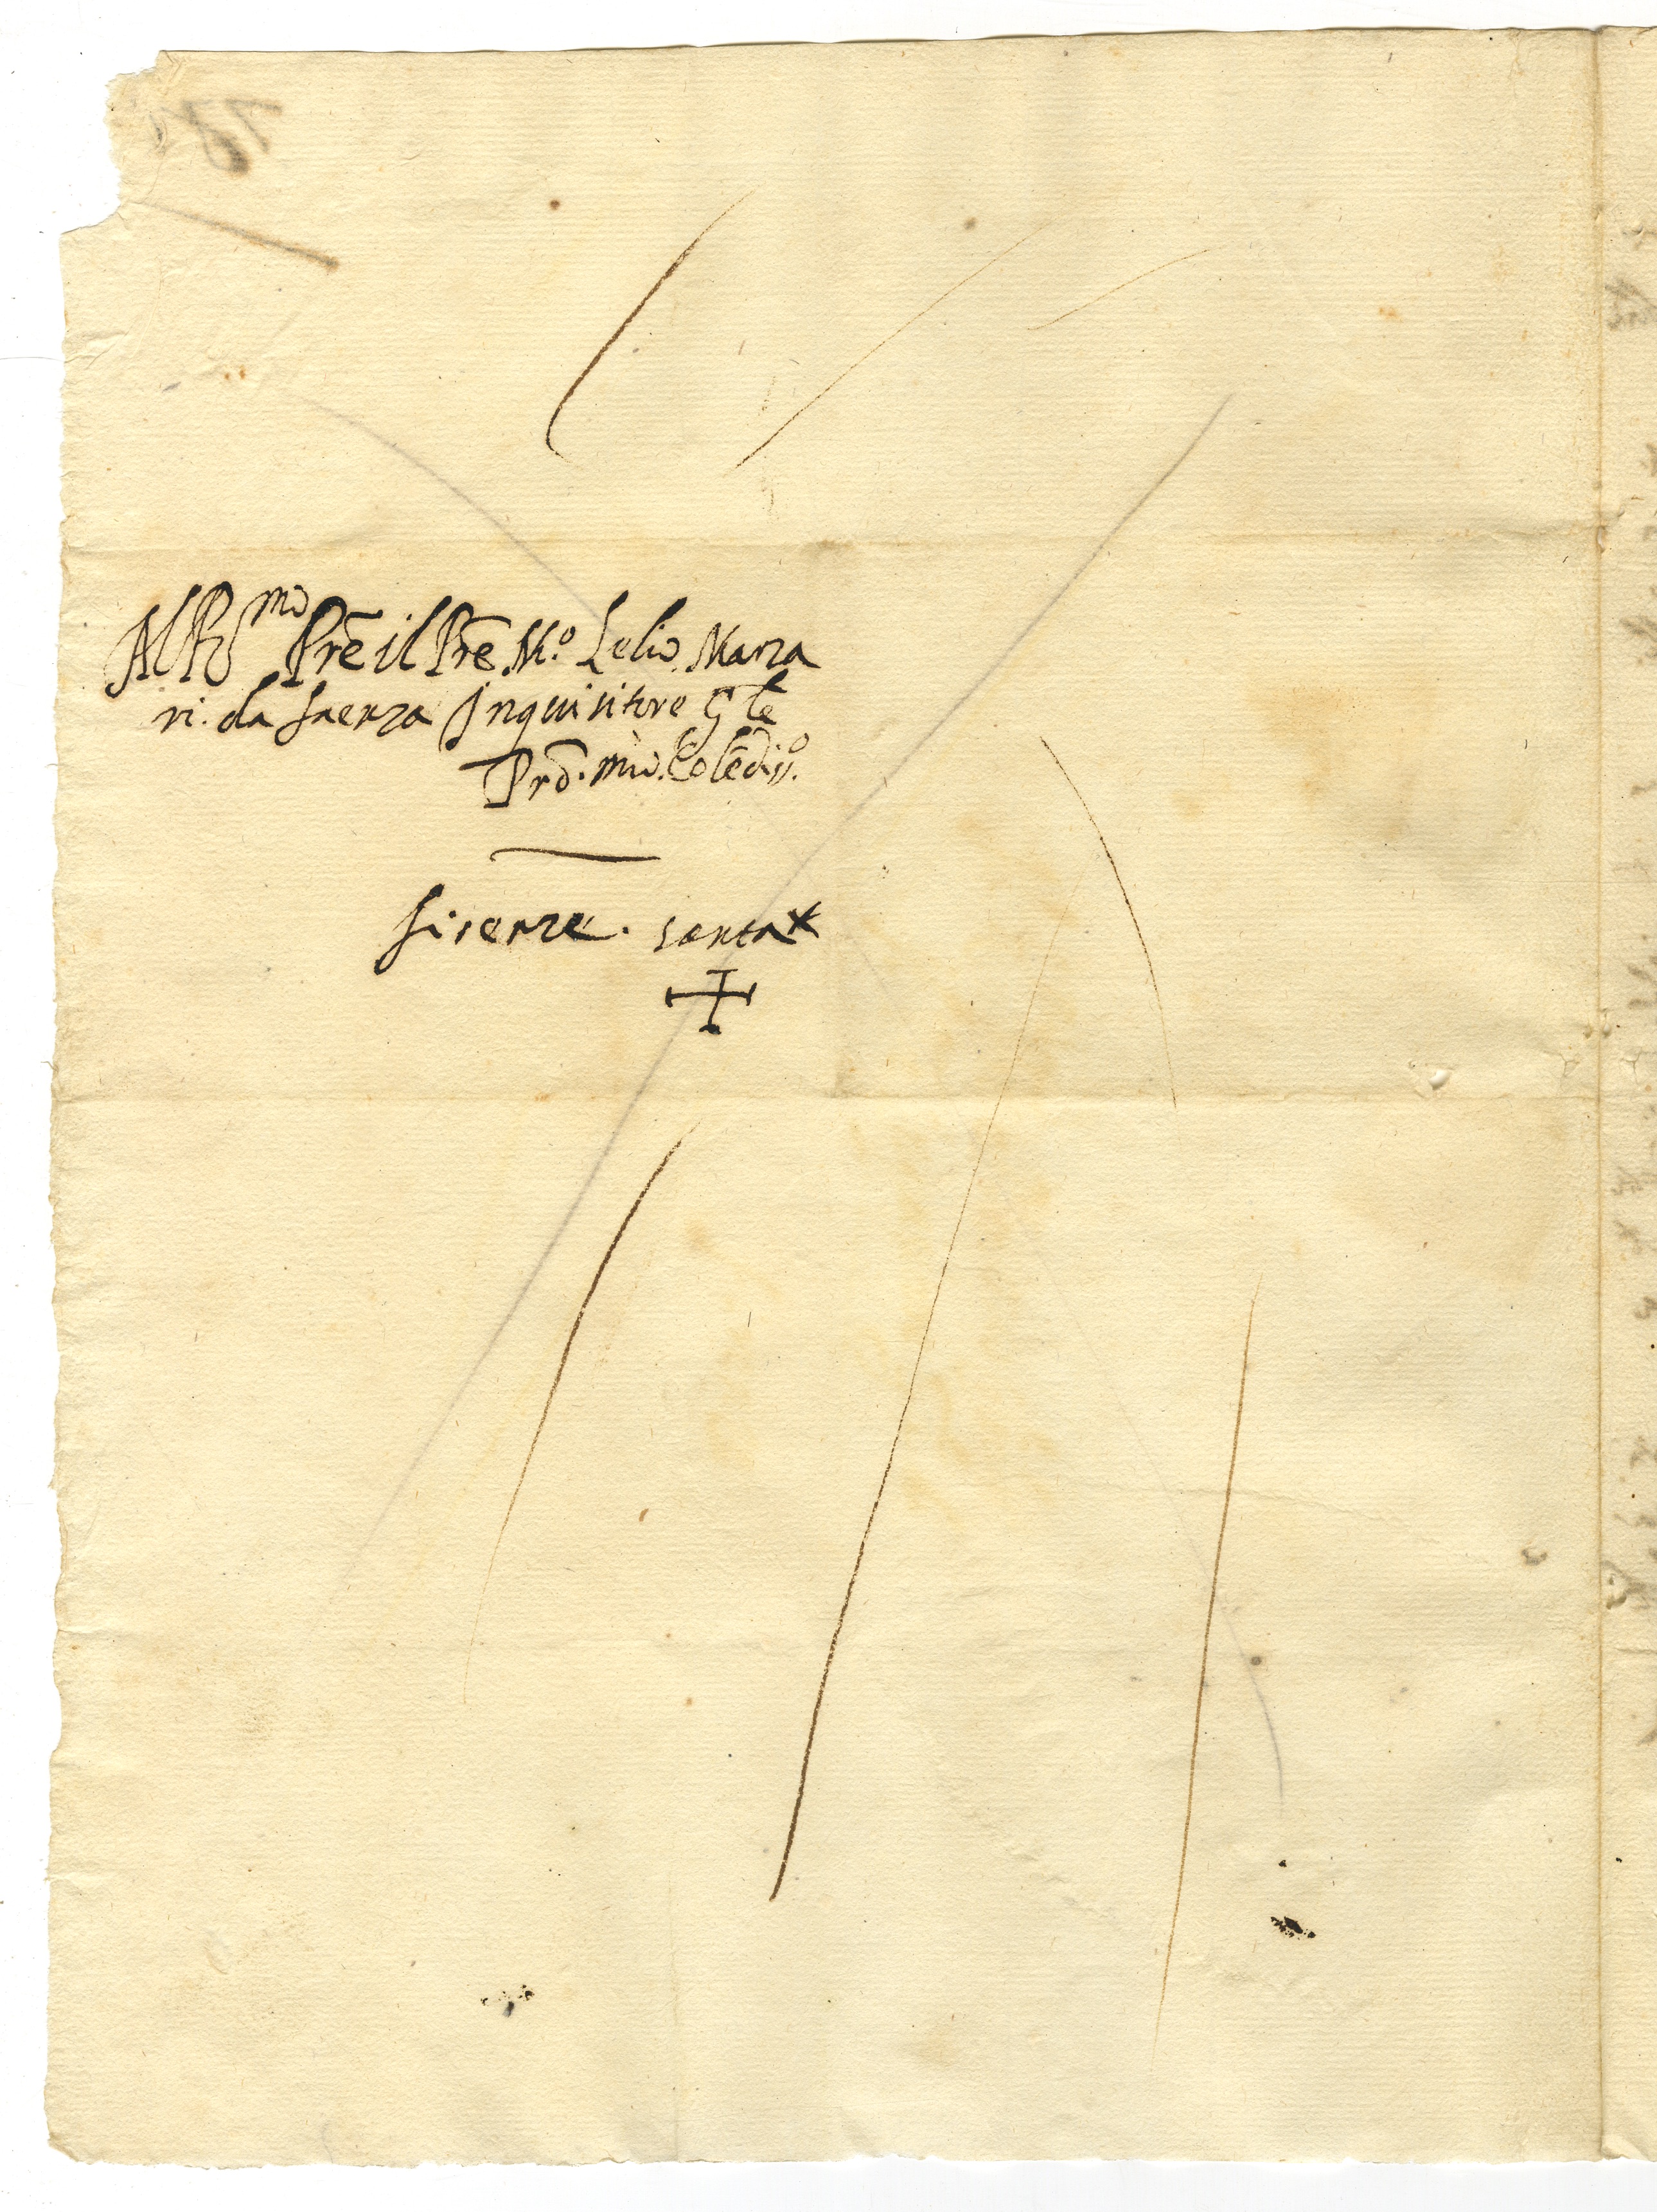 Al R.mo Prē il Prē M.o Lelio Marza
ri. da faenza Inquisitore Gle
Prō. mio. Colēdiss.o
firenze. santa
✝